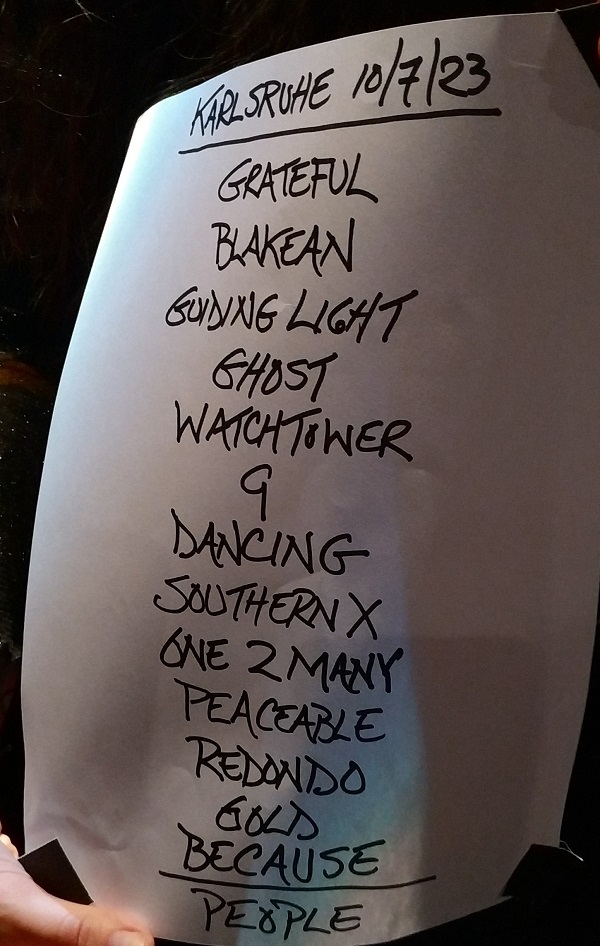 KARLSRUHE 10/7/23
GRATEFUL
BLAKEAN
GUIDING LIGHT
GHOST
WATCHTOWER
9
DANCING
SOUTHERN X
ONE 2 MANY
PEACEABLE
REDONDO
GOLD
BECAUSE
PEOPLE